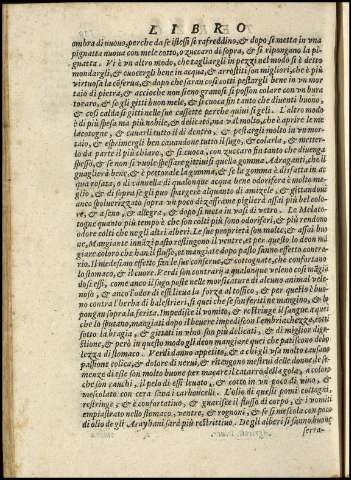 LIBRO
ombra di nuouo, perche da se istessi se rafreddino, & dopo si metta in vna
pignatta nuoua con mele cotto, o zuccaro di sopra, & si ripongano la pi-
gnatta. Vi è vn altro modo, che tagliargli in pezzi nel modo si è detto
mondargli, & cuocergli bene in acqua, & arrostiti son migliori, che è più
virtuosa la cosa, & dopo che saran cosi cotti pestargli bene in vn mor-
taio di pietra, & accioche non sieno granosi si posson colare con vn bura
tocaro, & se gli gitti buon mele, & si cuoca sin tanto che diuenti buono,
& cosi calda si gitti nelle sue cassette perche quiui si geli. L'altro modo
è di più spesa ma più nobile, & delicato, & val molto, che è aprire le me
lacotogne, & cauarli tutto il di dentro, & pestargli molto in vn mor-
taio, & esprimergli ben cauandone tutto il sugo, & colarla, & metter-
lo da parte il più chiaro, & si cuoca, con zuccaro sin tanto che diuenga
spesso, & se non si vuole spessare gittiui quella gomma, Adraganti, che il
guaglierà bene, & è pettorale la gomma, & se la gomma è disfatta in ac
qua rosata, o di vanella di qualunque acqua bene odorifera è molto me-
glio, & di sopra se gli puo spargere alquanto di amizcle, & gittandoui
anco spoluerizzato sopra vn poco di zaffrone piglierà assai più bel colo-
re, & a sano, & allegra, & dopo si metta in vasi di vetro. Le Melaco-
togne quanto più tempo è che son colti più sono odoriferi, & più rendono
odore colti che negli altri alberi. Le sue proprietà son molte, & assai buo
ne, Mangiante innāzi pasto restingono il ventre, et per questo lo deon mā
giare coloro che hanno il flusso, et mangiate dopo pasto fanno effetto contra-
rio. Il medesimo effetto fan le sue conserue, & cotognate, che confortano
lo stomaco, & il cuore. Verdi son contrarij a qualunque veleno cosi māgiā
dosi essi, come anco il sugo poste nelle morsicature di alcuno animal vele-
noso, & anco l'oder di essi lieua la forza al tossico, & per questo è buo-
no contra l'herba di balestrieri, si quei che son feriti ne mangino, & lo
pongan sopra la ferita. Impedisce il vomito, & restringe il sangue a quei
che lo sputano, mangiati dopo il beuere impediscon l'embriachezza, cotti
sotto la bragia, & gittati in vino son più delicati, & di miglior dige-
stione, & però in questo modo gli deon mangiare quei che patiscono debo
lezza di stomaco. Verdi danno appetito, & a chi gli vsa molto causano
passione colica, & dolore di nerui, & ritengono mestrui delle donne, le se-
menze di esse son molto buone per mollificar il catarro della gola, a coloro
che son rauchi, il pelo di essi leuato, & cotto in vn poco di vino, &
mescolato con cera sana i carboncelli. L'olio di questi pomi cotogni,
restringe, & è confortatiuo, & guarisce il flusso di corpo, & i vomiti
empiastrato nello stomaco, ventre, & rognoni, & se si mescola con poco
di olio degli Arayhani sarà più restrittiuo. Degli alberi si fanno buone
serra-